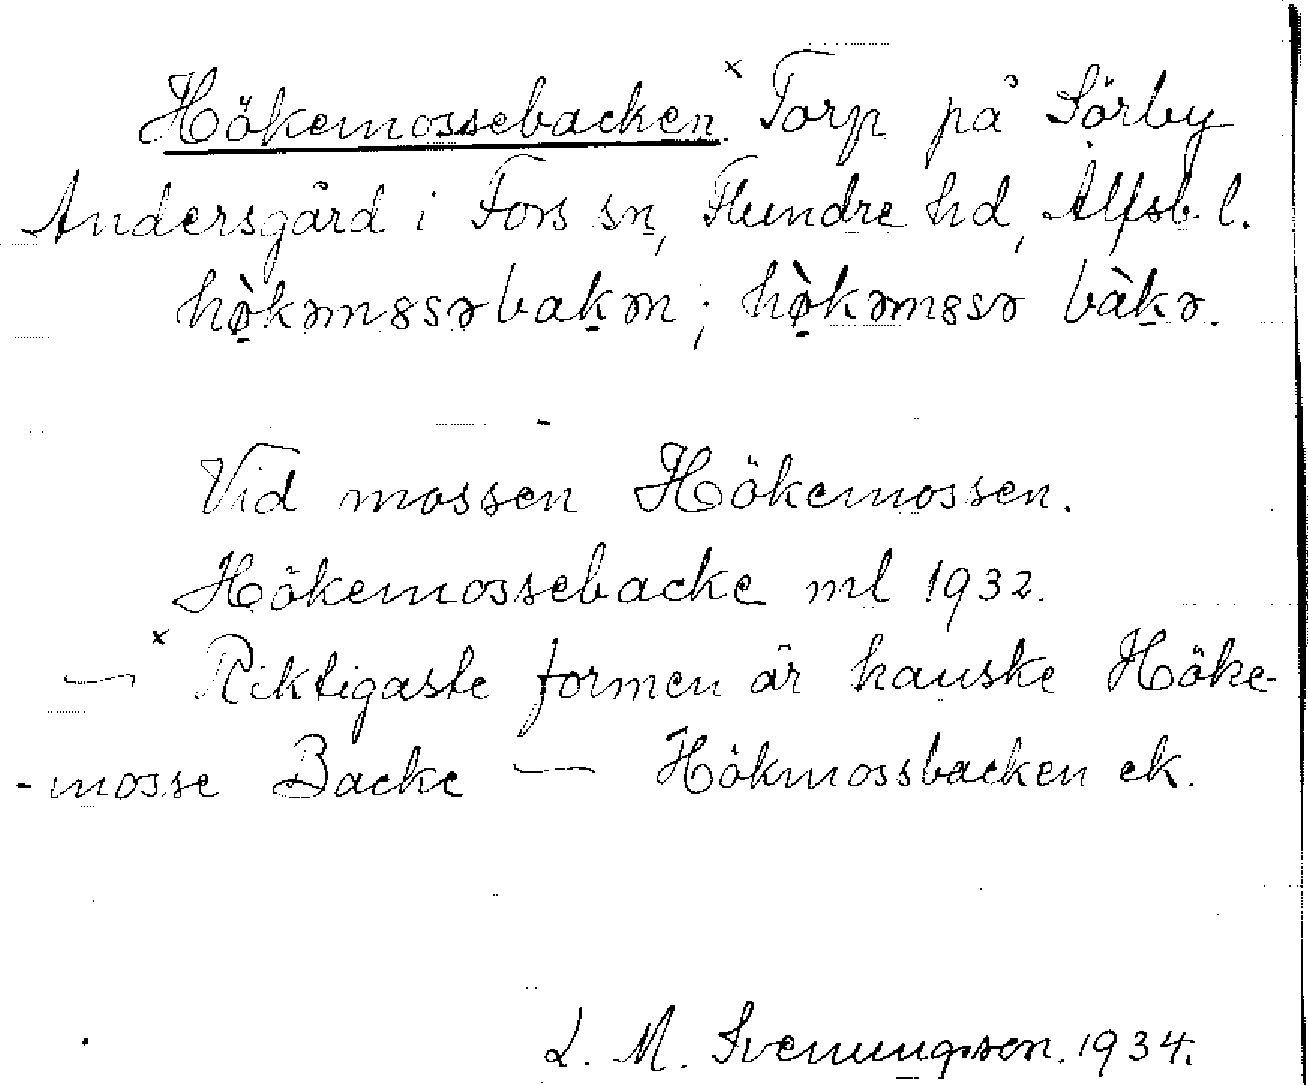 Hökemossebacken.ˣ Torp på Sörby
Andersgård i Fors sn, Flundre hd, Älfsb. l.
hø̀kəmȣsəbakən; hø̀kəmȣsə bàkə.
Vid mossen Hökemossen.
Hökemossebacke ml 1932.
— ˣ Riktigaste formen är kanske Höke-
-mosse Backe — Hökmossbacken ek.
L. M. Svenungsson. 1934.